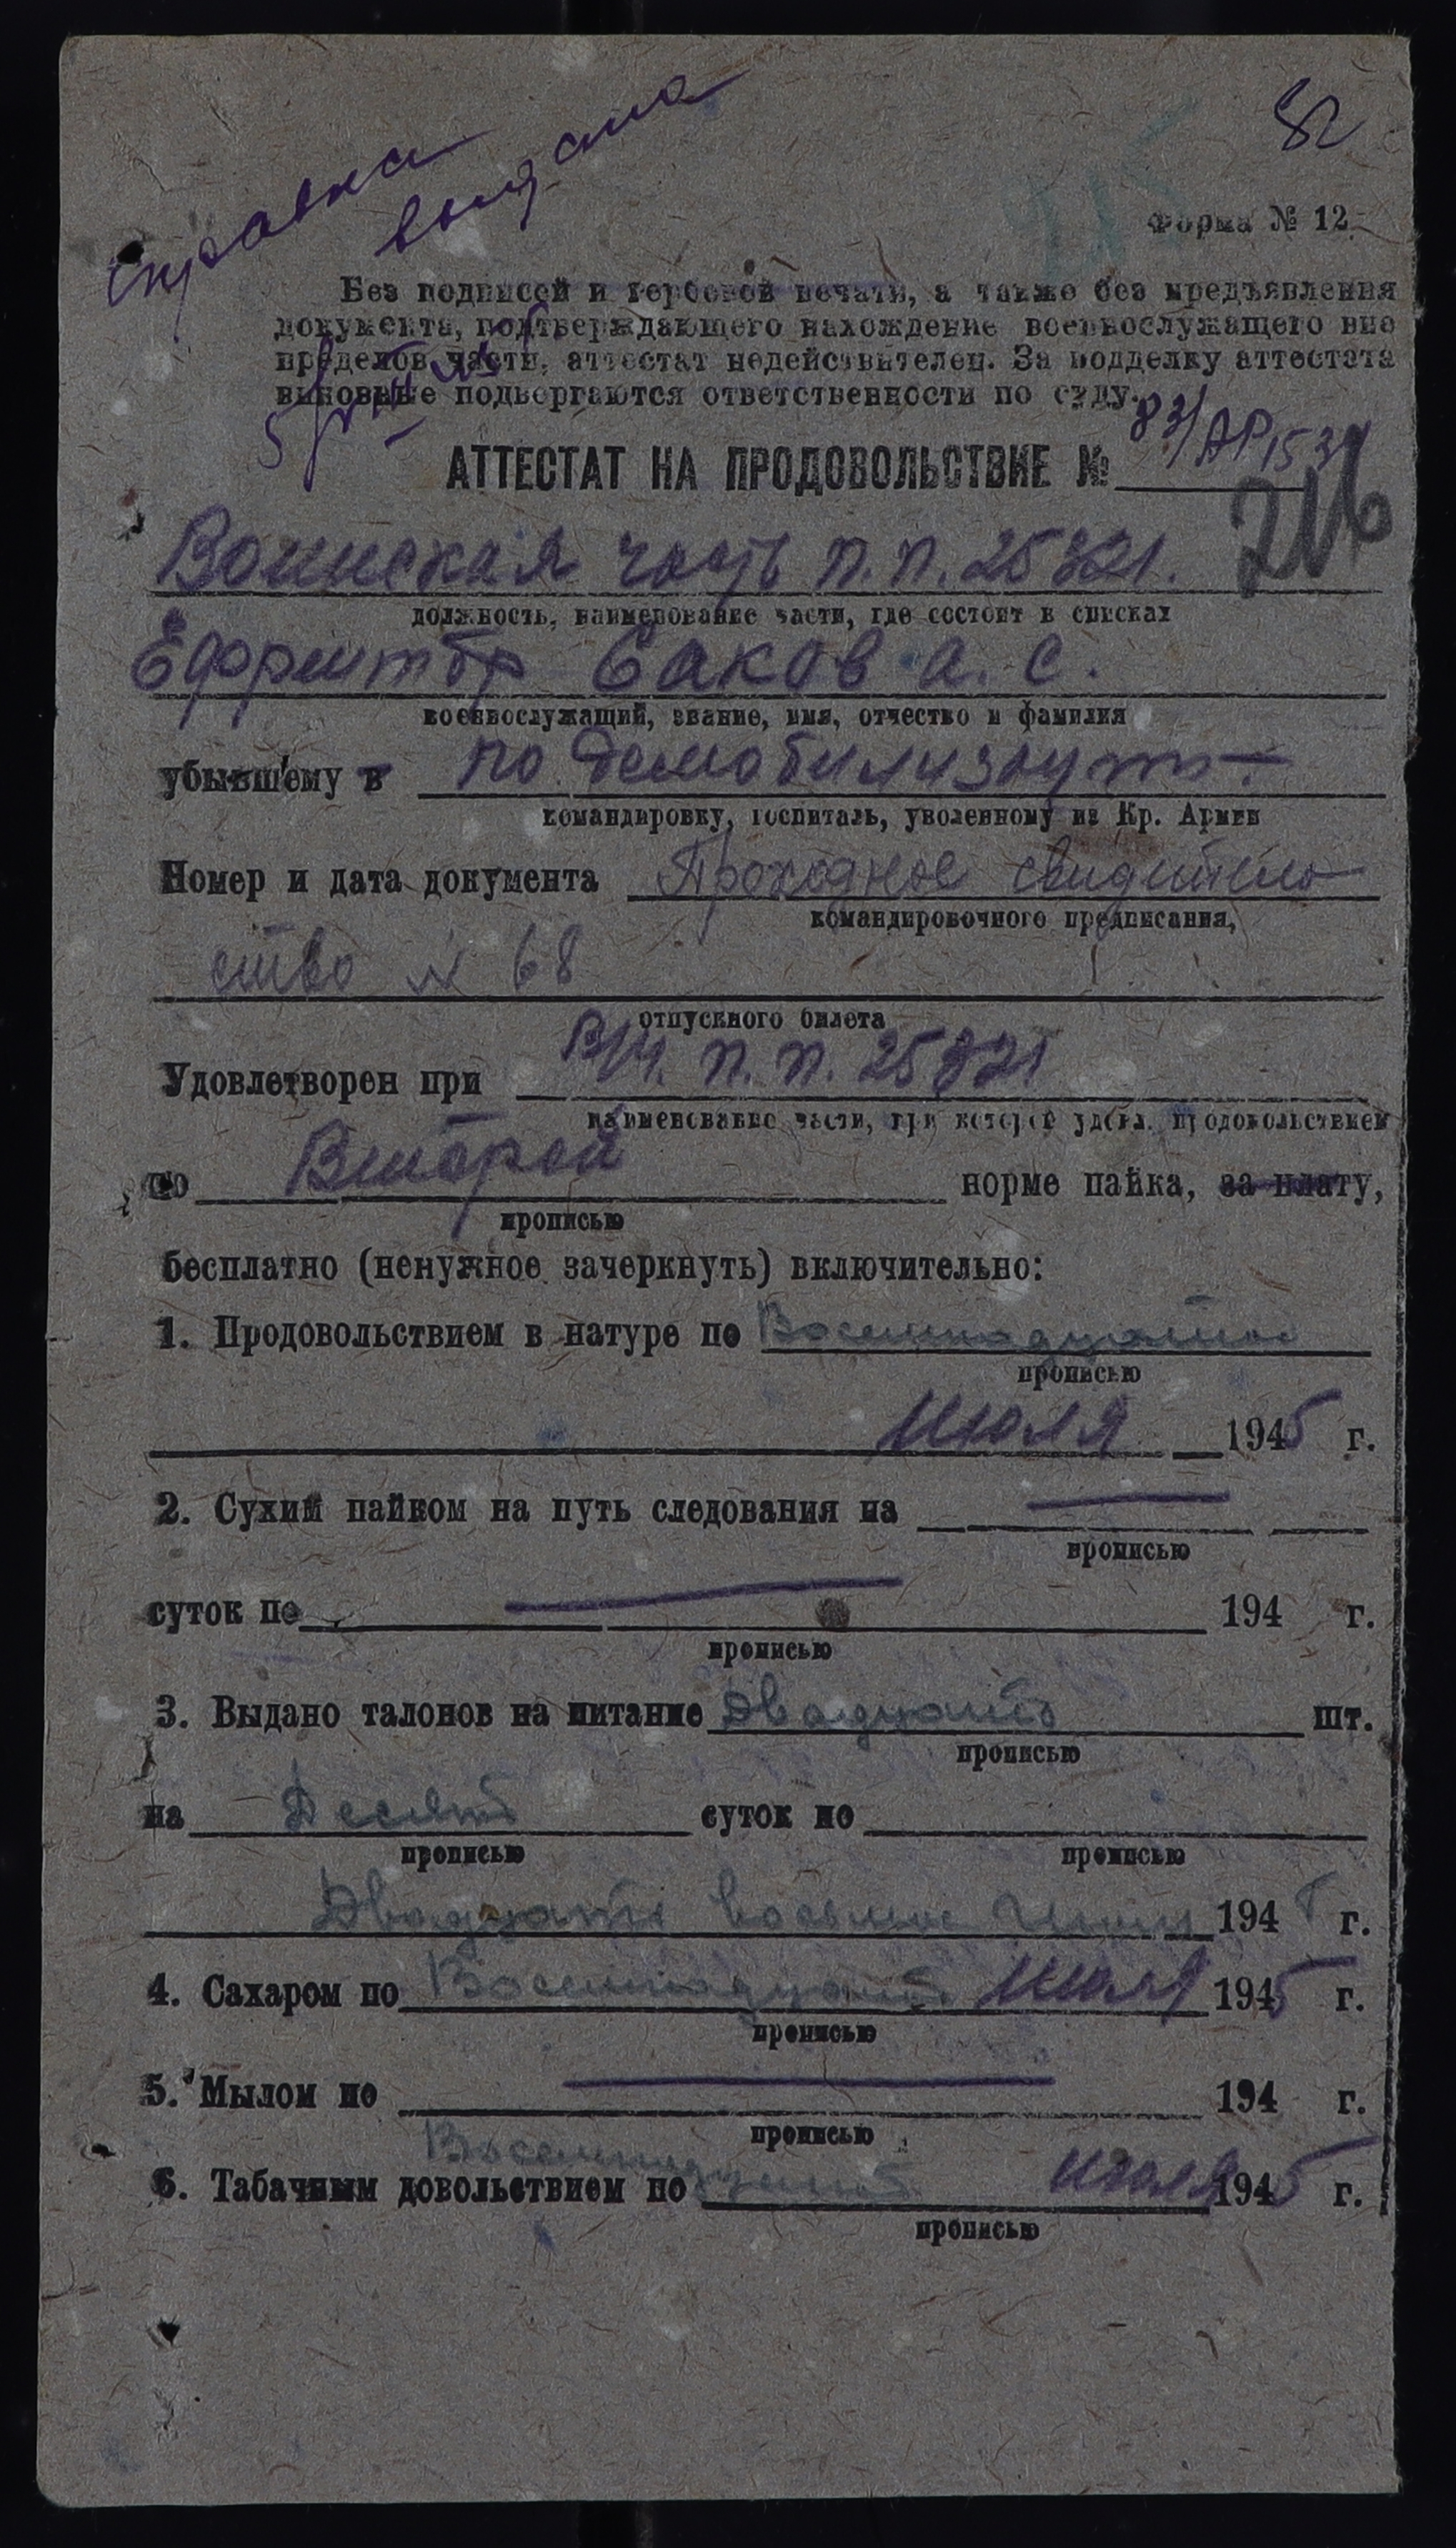 справка
выдана
82
Форма № 12
Без подписей и гербовой печати, а также без предъявления
документа, подтверждающего нахождение военнослужащего вне
пределов части, аттестат недействителен. За подделку аттестата
виновные подвергаются ответственности по суду.
АТТЕСТАТ НА ПРОДОВОЛЬСТВИЕ №
Воинская часть п.п. 25321.
должность, наименование части, где состоит в списках
Ефрейтор Саков А. С.
военнослужащий, звание, имя, отчество и фамилия
убывшему в по демобилизации
командировку, госпиталь, уволенному из Кр. Армии
Номер и дата документа Проходное свидетель
командировочного предписания,
ство № 68
отпускного билета
Удовлетворен при В/Ч. п. п. 25321
наименование части, при которой удовл. продовольствием
по Второй норме пайка, за плату,
прописью
бесплатно (ненужное зачеркнуть) включительно:
1. Продовольствием в натуре по Восемнадцатое
прописью
июля 1945 г.
2. Сухим пайком на путь следования на
прописью
суток по 194 г.
прописью
3. Выдано талонов на питание Двадцать шт.
прописью
на Десять суток по
прописью прописью
Двадцать восьмое Июля 1945 г.
4. Сахаром по Восемнадцать июля 1945 г.
прописью
5. Мылом по 194 г.
прописью
6. Табачным довольствием по Восемнадцать июля 1945 г.
прописью